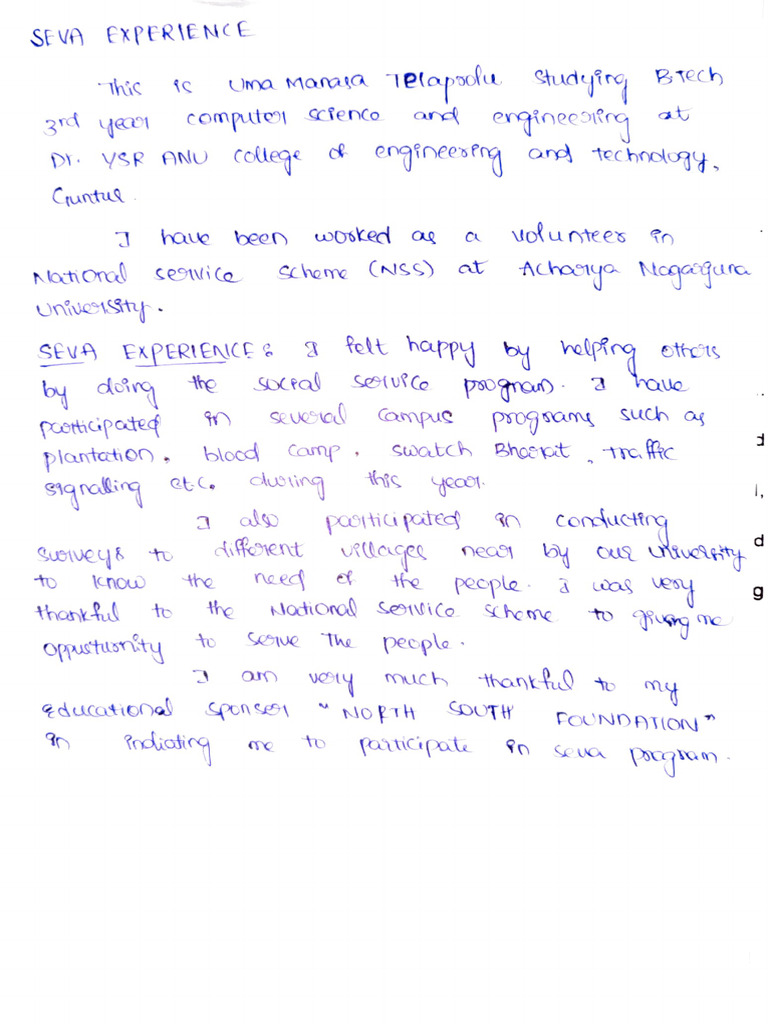 SEVA EXPERIENCE
This is Uma Manasa Telaprolu studying BTech
3rd year computer science and engineering at
Dr. YSR ANU college of engineering and technology,
Guntur.
I have been worked as a volunteer in
National service scheme (NSS) at Acharya Nagarjuna
University.
SEVA EXPERIENCE: I felt happy by helping others
by doing the social service program. I have
participated in several campus programs such as
plantation, blood camp, swatch Bharat, traffic
signalling etc. during this year.
I also participated in conducting
surveys to different villages near by our university
to know the need of the people. I was very
thankful to the National service scheme to giving me
oppusturnity to serve The people.
I am very much thankful to my
educational sponser "NORTH SOUTH FOUNDATION"
in indiating me to participate in seva program.
l,
d
g